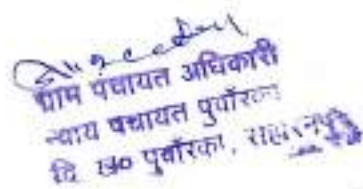 ग्राम पंचायत अधिकारी
न्याय पंचायत पुवाँरका
वि० ख० पुवाँरका, सहारनपुर